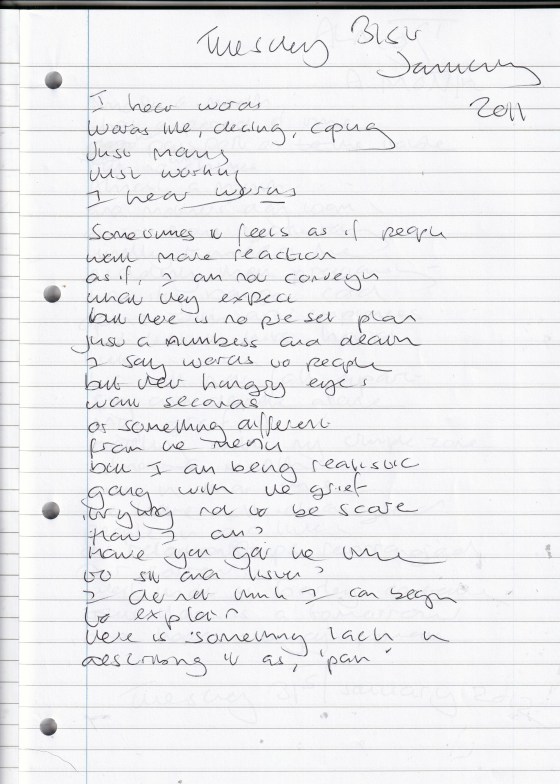 Tuesday 31st
January
2011
I hear words
Words like, dealing, coping
Just many
Just working
I hear words
Sometimes it feels as if people
want more reaction
as if, I am not conveyin
what they expect
but there is no pre set plan
Just a numbness and death
I say words to people
but their hungry eyes
want seconds
or something different
from the menu
but I am being realistic
going with the grief
trying not to be scare
How I am?
Have you got the time
to sit and listen?
I do not think I can begin
to explain
there is something lack in
describing it as, 'pain'